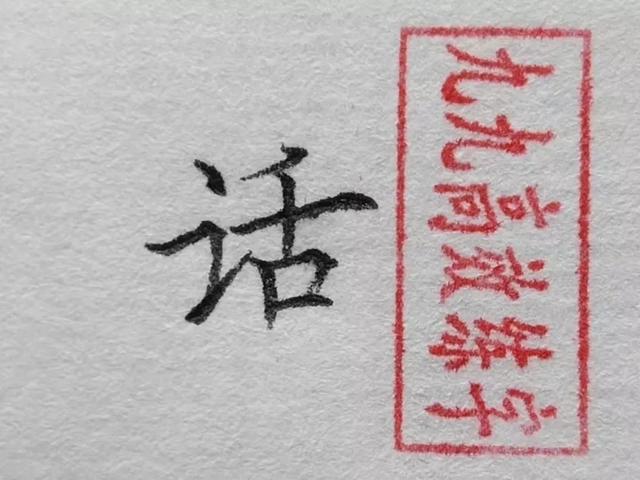 话
九九高效练字